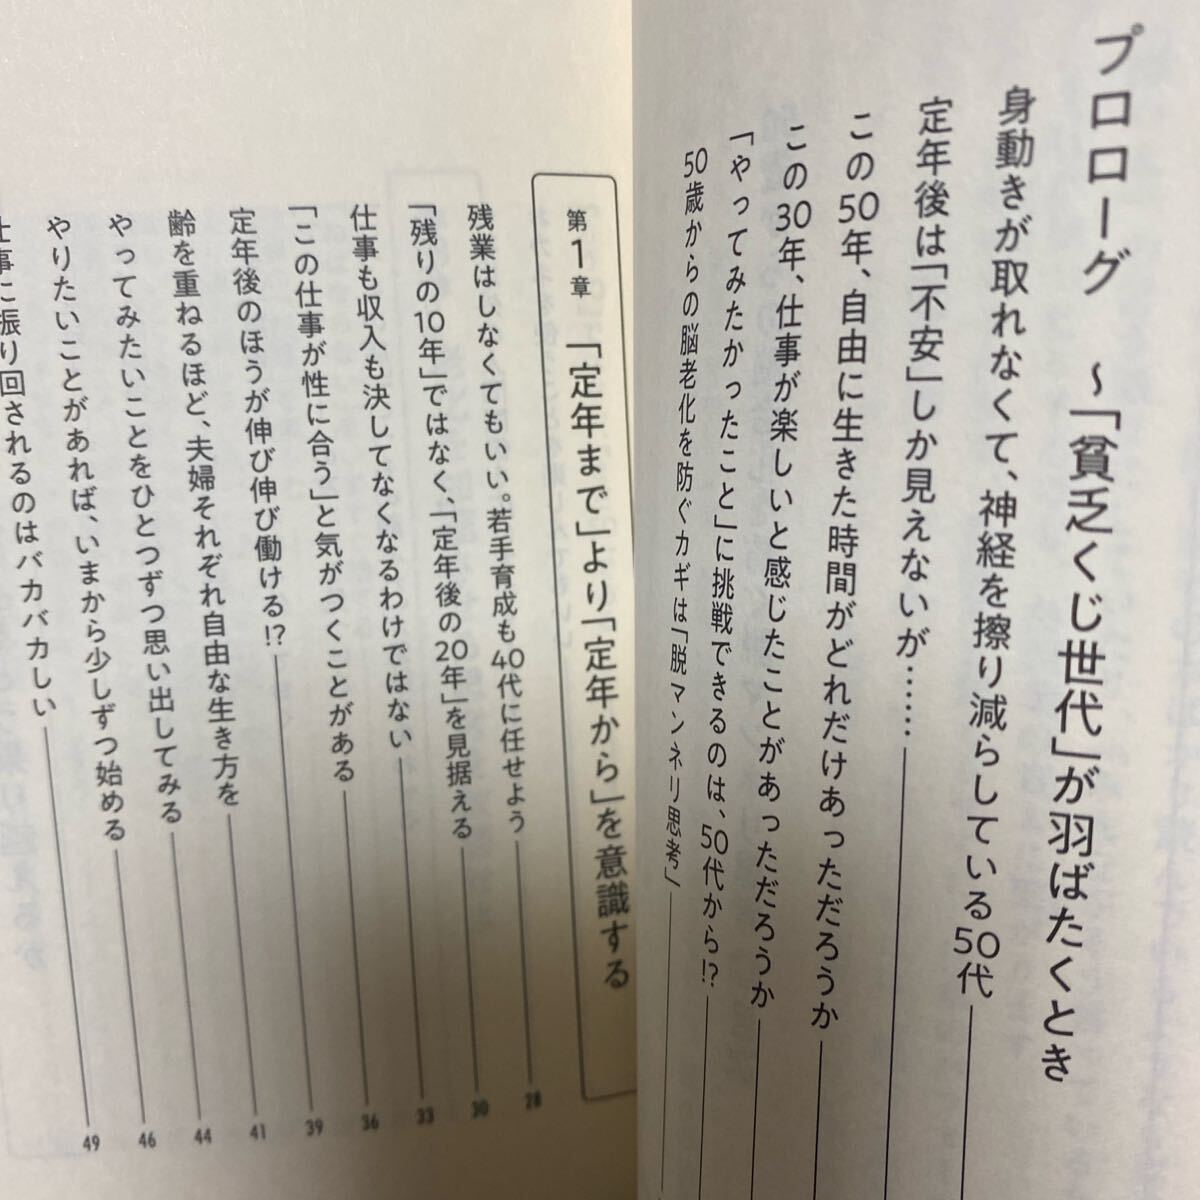 プロローグ ～「貧乏くじ世代」が羽ばたくとき
身動きが取れなくて、神経を擦り減らしている50代
定年後は「不安」しか見えないが……
この50年、自由に生きた時間がどれだけあっただろうか
この30年、仕事が楽しいと感じたことがあっただろうか
「やってみたかったこと」に挑戦できるのは、50代から!?
50歳からの脳老化を防ぐカギは「脱マンネリ思考」
第1章 「定年まで」より「定年から」を意識する
残業はしなくてもいい。若手育成も40代に任せよう 28
「残りの10年」ではなく、「定年後の20年」を見据える 30
仕事も収入も決してなくなるわけではない 33
「この仕事が性に合う」と気がつくことがある 36
定年後のほうが伸び伸び働ける!? 39
齢を重ねるほど、夫婦それぞれ自由な生き方を 41
やってみたいことをひとつずつ思い出してみる 44
やりたいことがあれば、いまから少しずつ始める 46
仕事に振り回されるのはバカバカしい 49